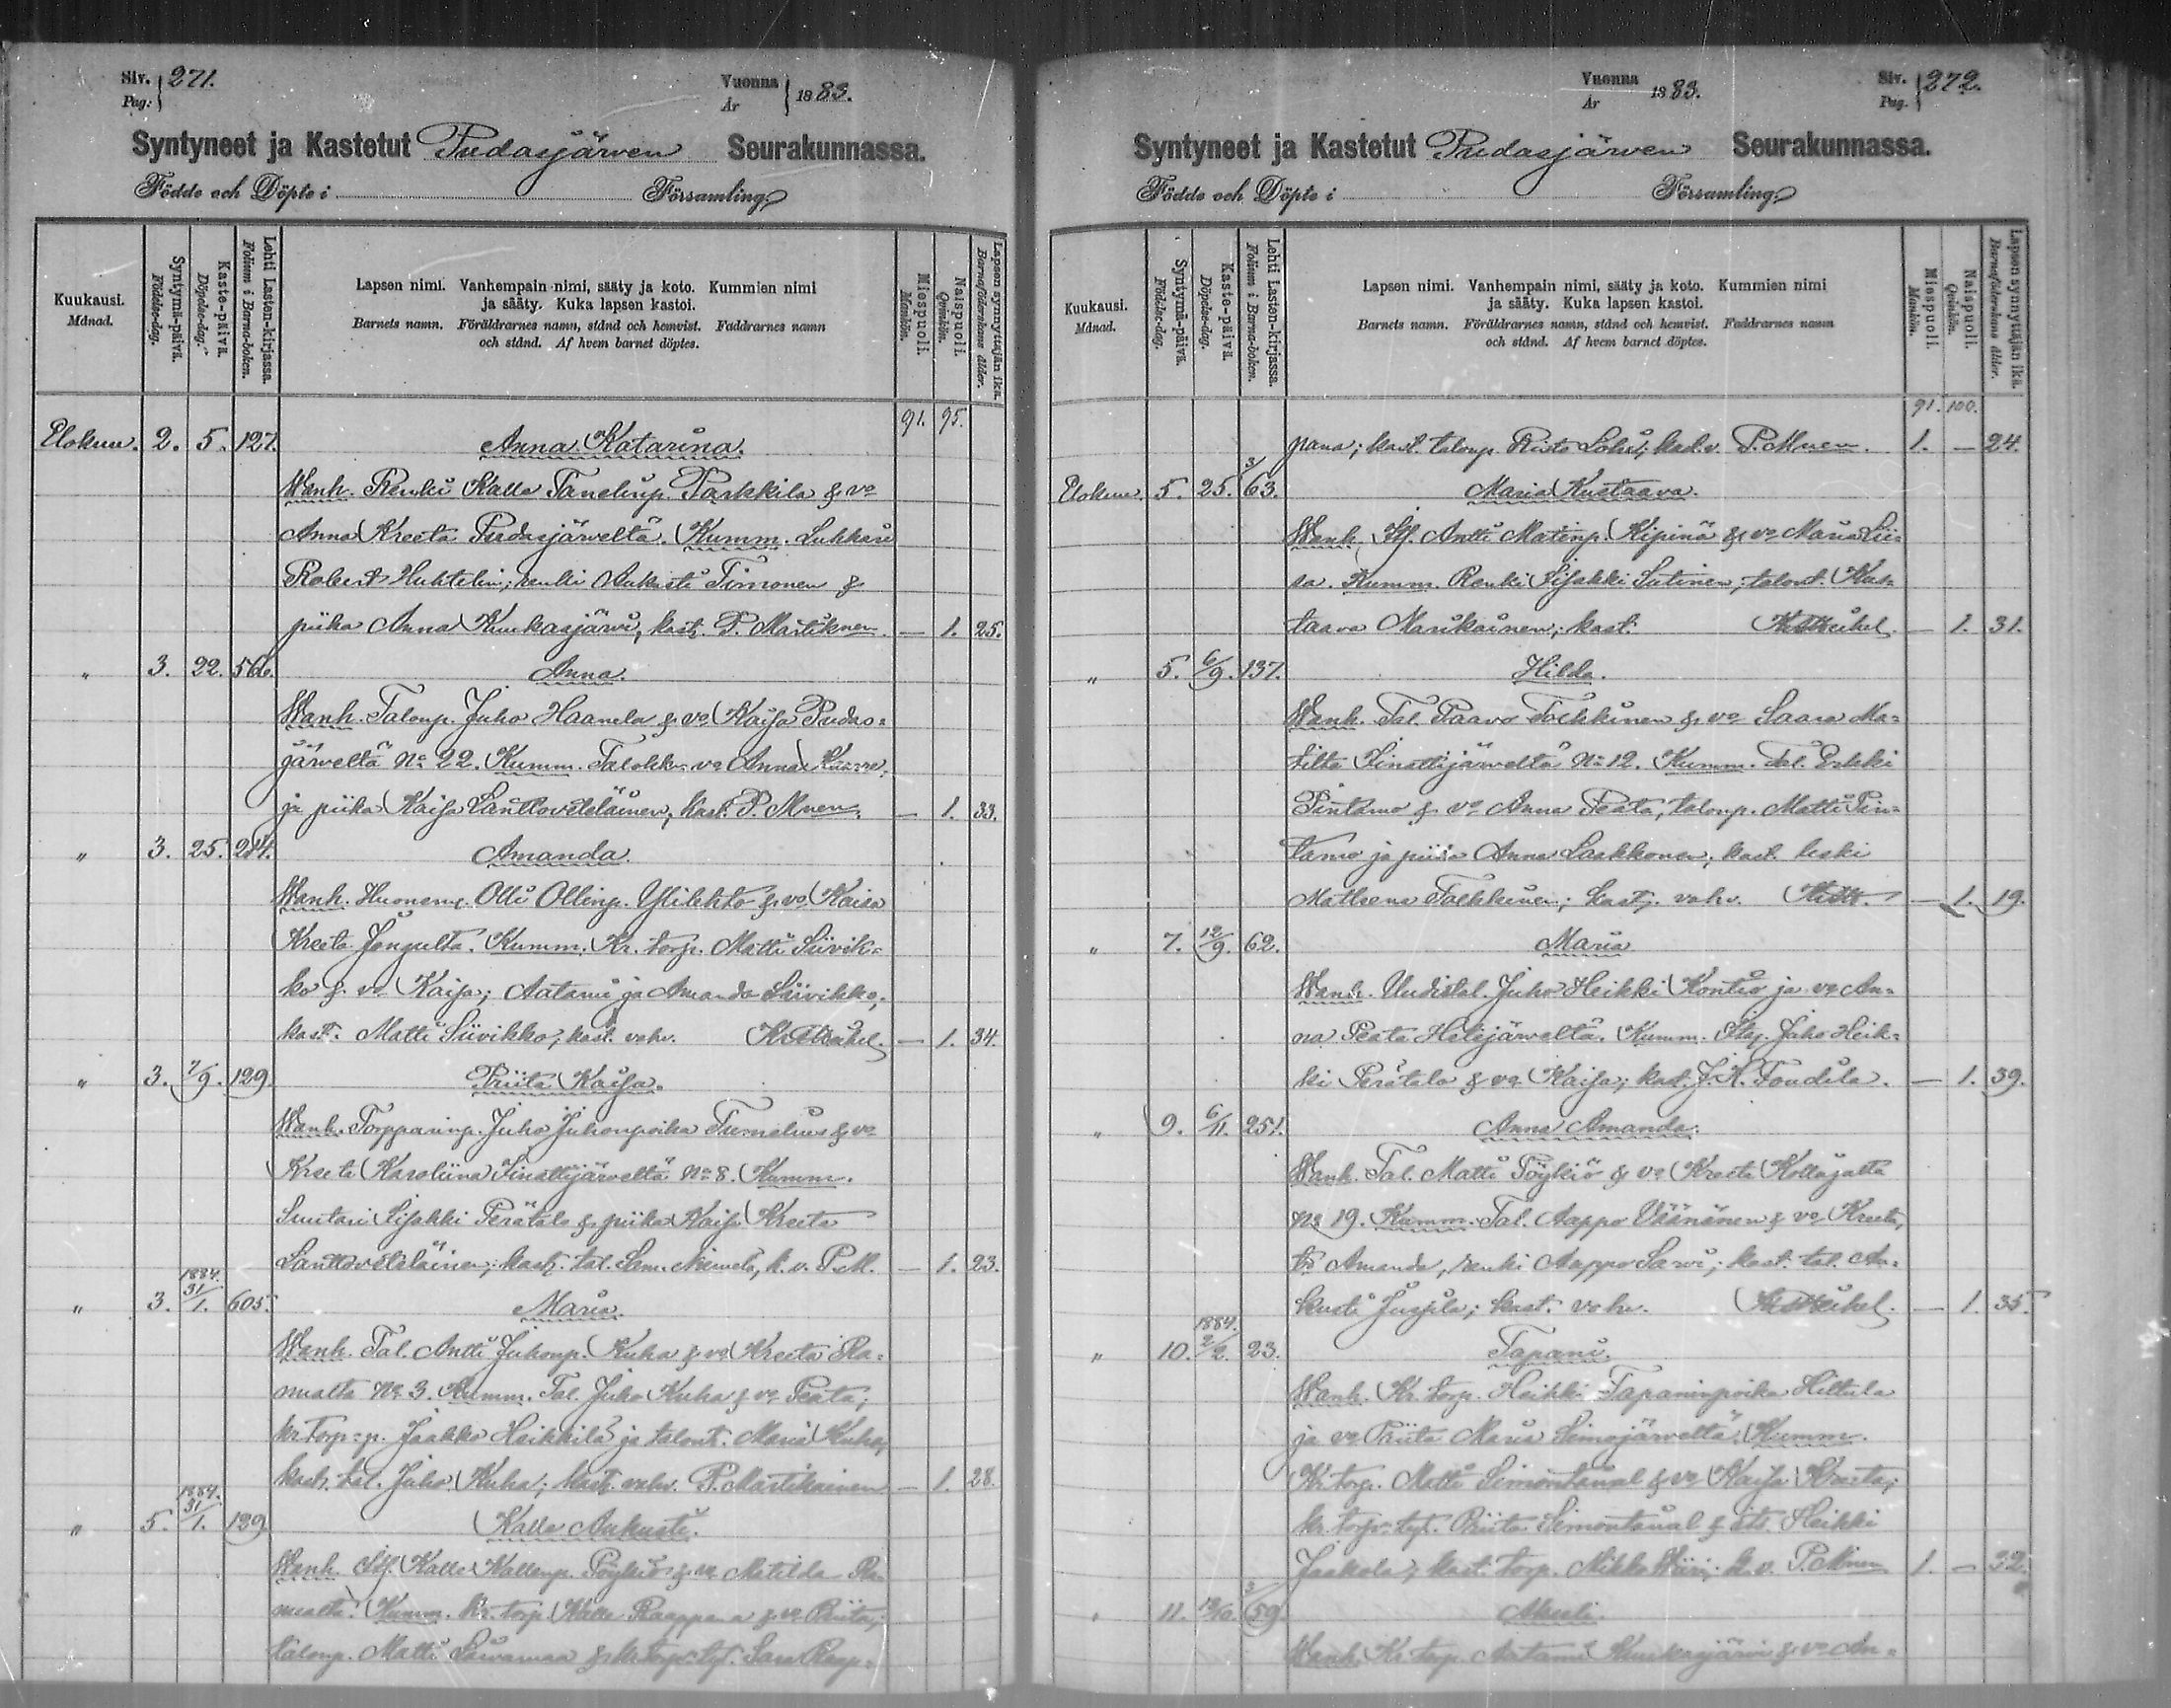 Siv. 271.
Pag:
Vuonna 1883.
År
Syntyneet ja Kastetut Pudasjärven Seurakunnassa.
Födde och Döpte i Församling
Kuukausi.
Månad.
Syntymä-päivä.
Födelse-dag.
Kaste-päivä.
Döpelse-dag.
Lehti Lasten-kirjassa.
Folium i Barna-boken.
Lapsen nimi. Vanhempain nimi, sääty ja koto. Kummien nimi
ja sääty. Kuka lapsen kastoi.
Barnets namn. Föräldrarnes namn, stånd och hemvist. Faddrarnes namn
och stånd. Af hvem barnet döptes.
Miespuoli.
Mankön.
Naispuoli.
Qvinkön.
Lapsen synnyttäjän ikä.
Barnaföderskans ålder.
91. 95.
Elokuu. 2. 5. 127. Anna Katarina.
Wanh. Renki Kalle Tanelinp. Parkkila & vo
Anna Kreeta Pudasjärveltä. Kumm. Lukkari
Robert Huhtelin; renki Aukusti Timonen &
piika Anna Kuukasjärvi, kast. P. Martiknen. — 1. 25.
" 3. 22. 566. Anna.
Wanh. Talonp. Juho Haanela & vo Kaisa Pudas=
järveltä No 22. Kumm. Talokk. vo Anna
ja piika Kaisa Lanttoveteläinen, kast. P. Mnen. — 1. 33.
" 3. 25. 284. Amanda.
Wanh. Huonem. Olli Ollinp. Ylilehto & vo Kaisa
Kreeta Jongulta. Kumm. Kr. torp. Matti Siivik=
ko & vo Kaisa; Aatami ja Amanda Siivikko;
kast. Matti Siivikko; kast. vahv. — 1. 34.
" 3. 7/9. 129. Priita Kaisa.
Wanh. Torpparinp. Juho Juhonpoika Turnelius & vo
Kreeta Karoliina Iinattijärveltä No 8. Kumm.
Suutari Iisakki Perätalo & piika Kaisa Kreeta
Lanttoveteläinen; kast. tal. Sam. Niemelä, k. v. P. M. — 1. 23.
1884.
" 3. 31/1. 605. Maria.
Wanh. Tal. Antti Juhonp. Kuha & vo Kreeta Ra=
nualta No 3. Kumm. Tal. Juho Kuha & vo Peata;
kr. torp=p. Jaakko Heikkilä ja talont. Maria Kuha;
kast. tal. Juho Kuha; kast. vahv. P. Martikainen — 1. 28.
1884.
" 5. 31/1. 129. Kalle Aukusti.
Wanh. Itf. Kalle Kallenp. Pöykiö & vo Matilda Ra=
nualta. Kumm. kr. torp. Kalle Raappana & vo Priita;
talonp. Matti Särvämaa & kr. torp. tyt. Sara Raap=
Siv. 272.
Pag.
Vuonna 1883.
År
Syntyneet ja Kastetut Pudasjärven Seurakunnassa.
Födde och Döpte i Församling
Kuukausi.
Månad.
Syntymä-päivä.
Födelse-dag.
Kaste-päivä.
Döpelse-dag.
Lehti Lasten-kirjassa.
Folium i Barna-boken.
Lapsen nimi. Vanhempain nimi, sääty ja koto. Kummien nimi
ja sääty. Kuka lapsen kastoi.
Barnets namn. Föräldrarnes namn, stånd och hemvist. Faddrarnes namn
och stånd. Af hvem barnet döptes.
Miespuoli.
Mankön.
Naispuoli.
Qvinkön.
Lapsen synnyttäjän ikä.
Barnaföderskans ålder.
91. 100.
pana; kast. talonp. Risto Lohi; kast. v. P. Mnen. 1. — 24.
Elokuu. 5. 25. 3/63. Maria Kustaava.
Wanh. Itf. Antti Matinp. Kipinä & vo Maria Lii=
sa. Kumm. Renki Iisakki Sutinen; talont. Kus=
taava Marikainen; kast. — 1. 31.
" 5. 6/9. 137. Hilda.
Wanh. Tal. Paavo Tolkkinen & vo Saara Ma=
tilta Iinattijärveltä No 12. Kumm. Tal. Erkki
Pintamo & vo Anna Peata, talonp. Matti Pin=
tamo ja piika Anna Laakkonen; kast. leski
Mathena Tolkkinen; kast. vahv. — 1. 19.
" 7. 12/9. 62. Maria
Wanh. Uudistal. Juho Heikki Kontio ja vo An=
na Peata Hetejärveltä. Kumm. Juho Heik=
ki Perätalo & vo Kaisa; kast. J. K. Tondila. — 1. 39.
" 9. 6/11. 251. Anna Amanda.
Wanh. Tal. Matti Pöykiö & vo Kreeta Kollajalta
No 19. Kumm. Tal. Aappo Väänänen & vo Kreeta,
tr Amanda, renki Aappo Sarvi; kast. tal. Au=
kusti Juujila; kast. vahv. — 1. 35.
1884.
" 10. 2/2. 23. Tapani.
Wanh. Kr. torp. Heikki Tapaninpoika Hiltula
ja vo Priita Maria Simojärveltä. Kumm.
Kr. torp. Matti Simontaival & vo Kaisa Kreeta;
kr. torp. tyt. Priita Simontaival & its. Heikki
Jaakola; kast. torp. Mikko Wäri; k. v. P. Mnen 1. — 32.
" 11. 12/10. 3/59.
Wanh. Kr. torp. Aatami Kuukasjärvi & vo An=